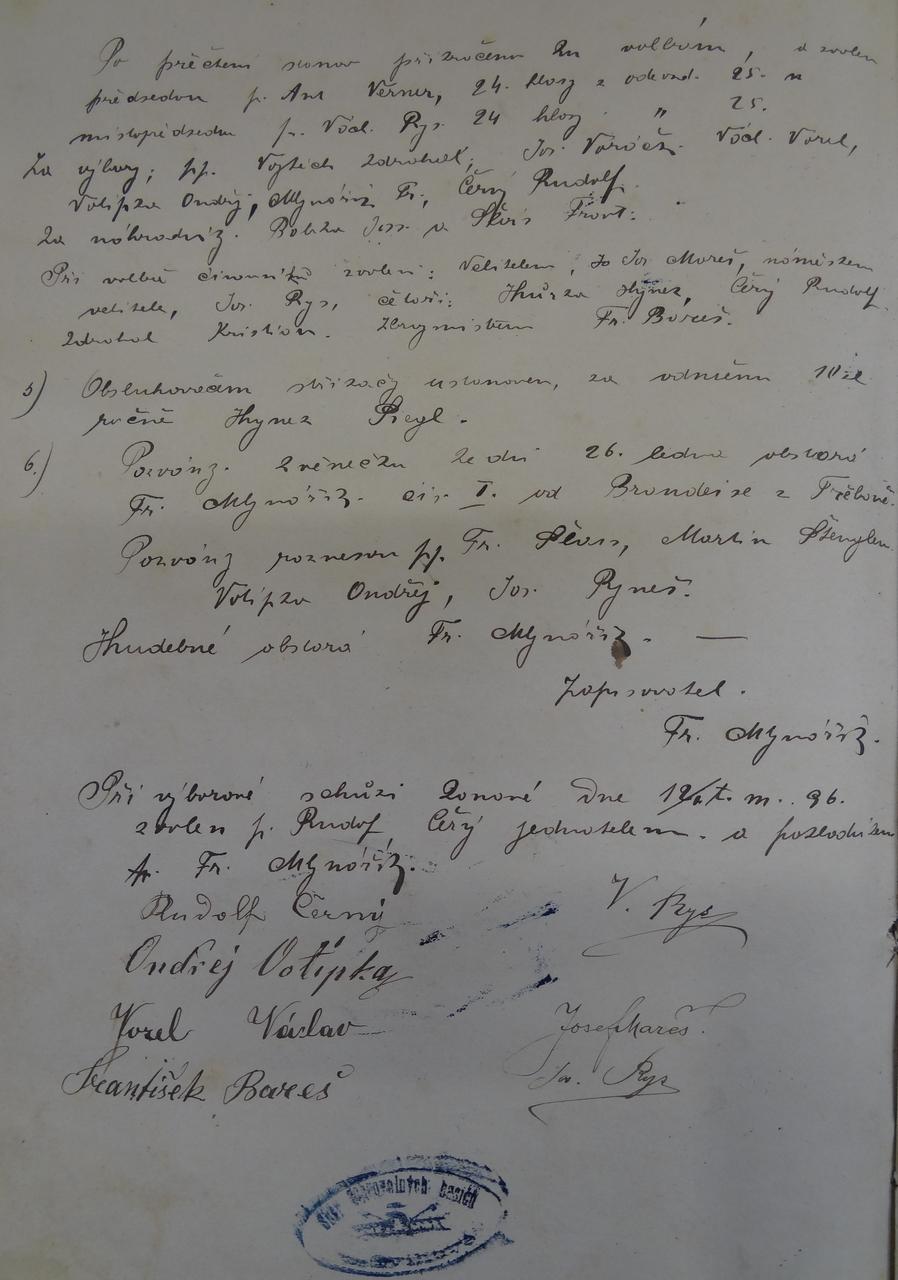 Po přečtení stanov přikročeno ku volbám, a zvolen
předsedou p. Ant Verner, 24. hlasy z odevzd. 25. a
místopředsedou p. Václ. Rys. 24 hlasy " 25.
Za výbory; pp. Vojtěch Zdrohal; Jos. Václ. Vorel,
Votipka Ondřej, Mlynářík Fr, Černý Rudolf.
Za náhradníky. a Frant:
Při volbě činovníků zvolen: Velitelem, Jos Mareš, náměstem
velitele, Jos. Rys, četaři: Hynek, Černý Rudolf
Zdrohal Kristian. Fr. Bareš.
5) Obsluhovačem stříkačky ustanoven, za odměnu 10 zl
ročně Hynek Riegl.
6.) Pozvánky. k věnečku ke dni 26. ledna obstará
Fr. Mlynářík. čis. I. od Brandeise z Třeboně.
Pozvánky roznesou pp. Fr. Martin
Votipka Ondřej, Jos. Ryneš.
Hudebné obstará Fr. Mlynářík. —
Zapisovatel.
Fr. Mlynářík.
Při výborové schůzi konané dne t. m. 96.
zvolen p. Rudolf Černý jednatelem. a pokladníkem
p. Fr. Mlynářík.
Rudolf Černý
V. Rys
Ondřej Votípka
Vorel Václav
Josef Mareš.
František Bareš
Jos. Rys
Sbor dobrovolných hasičů